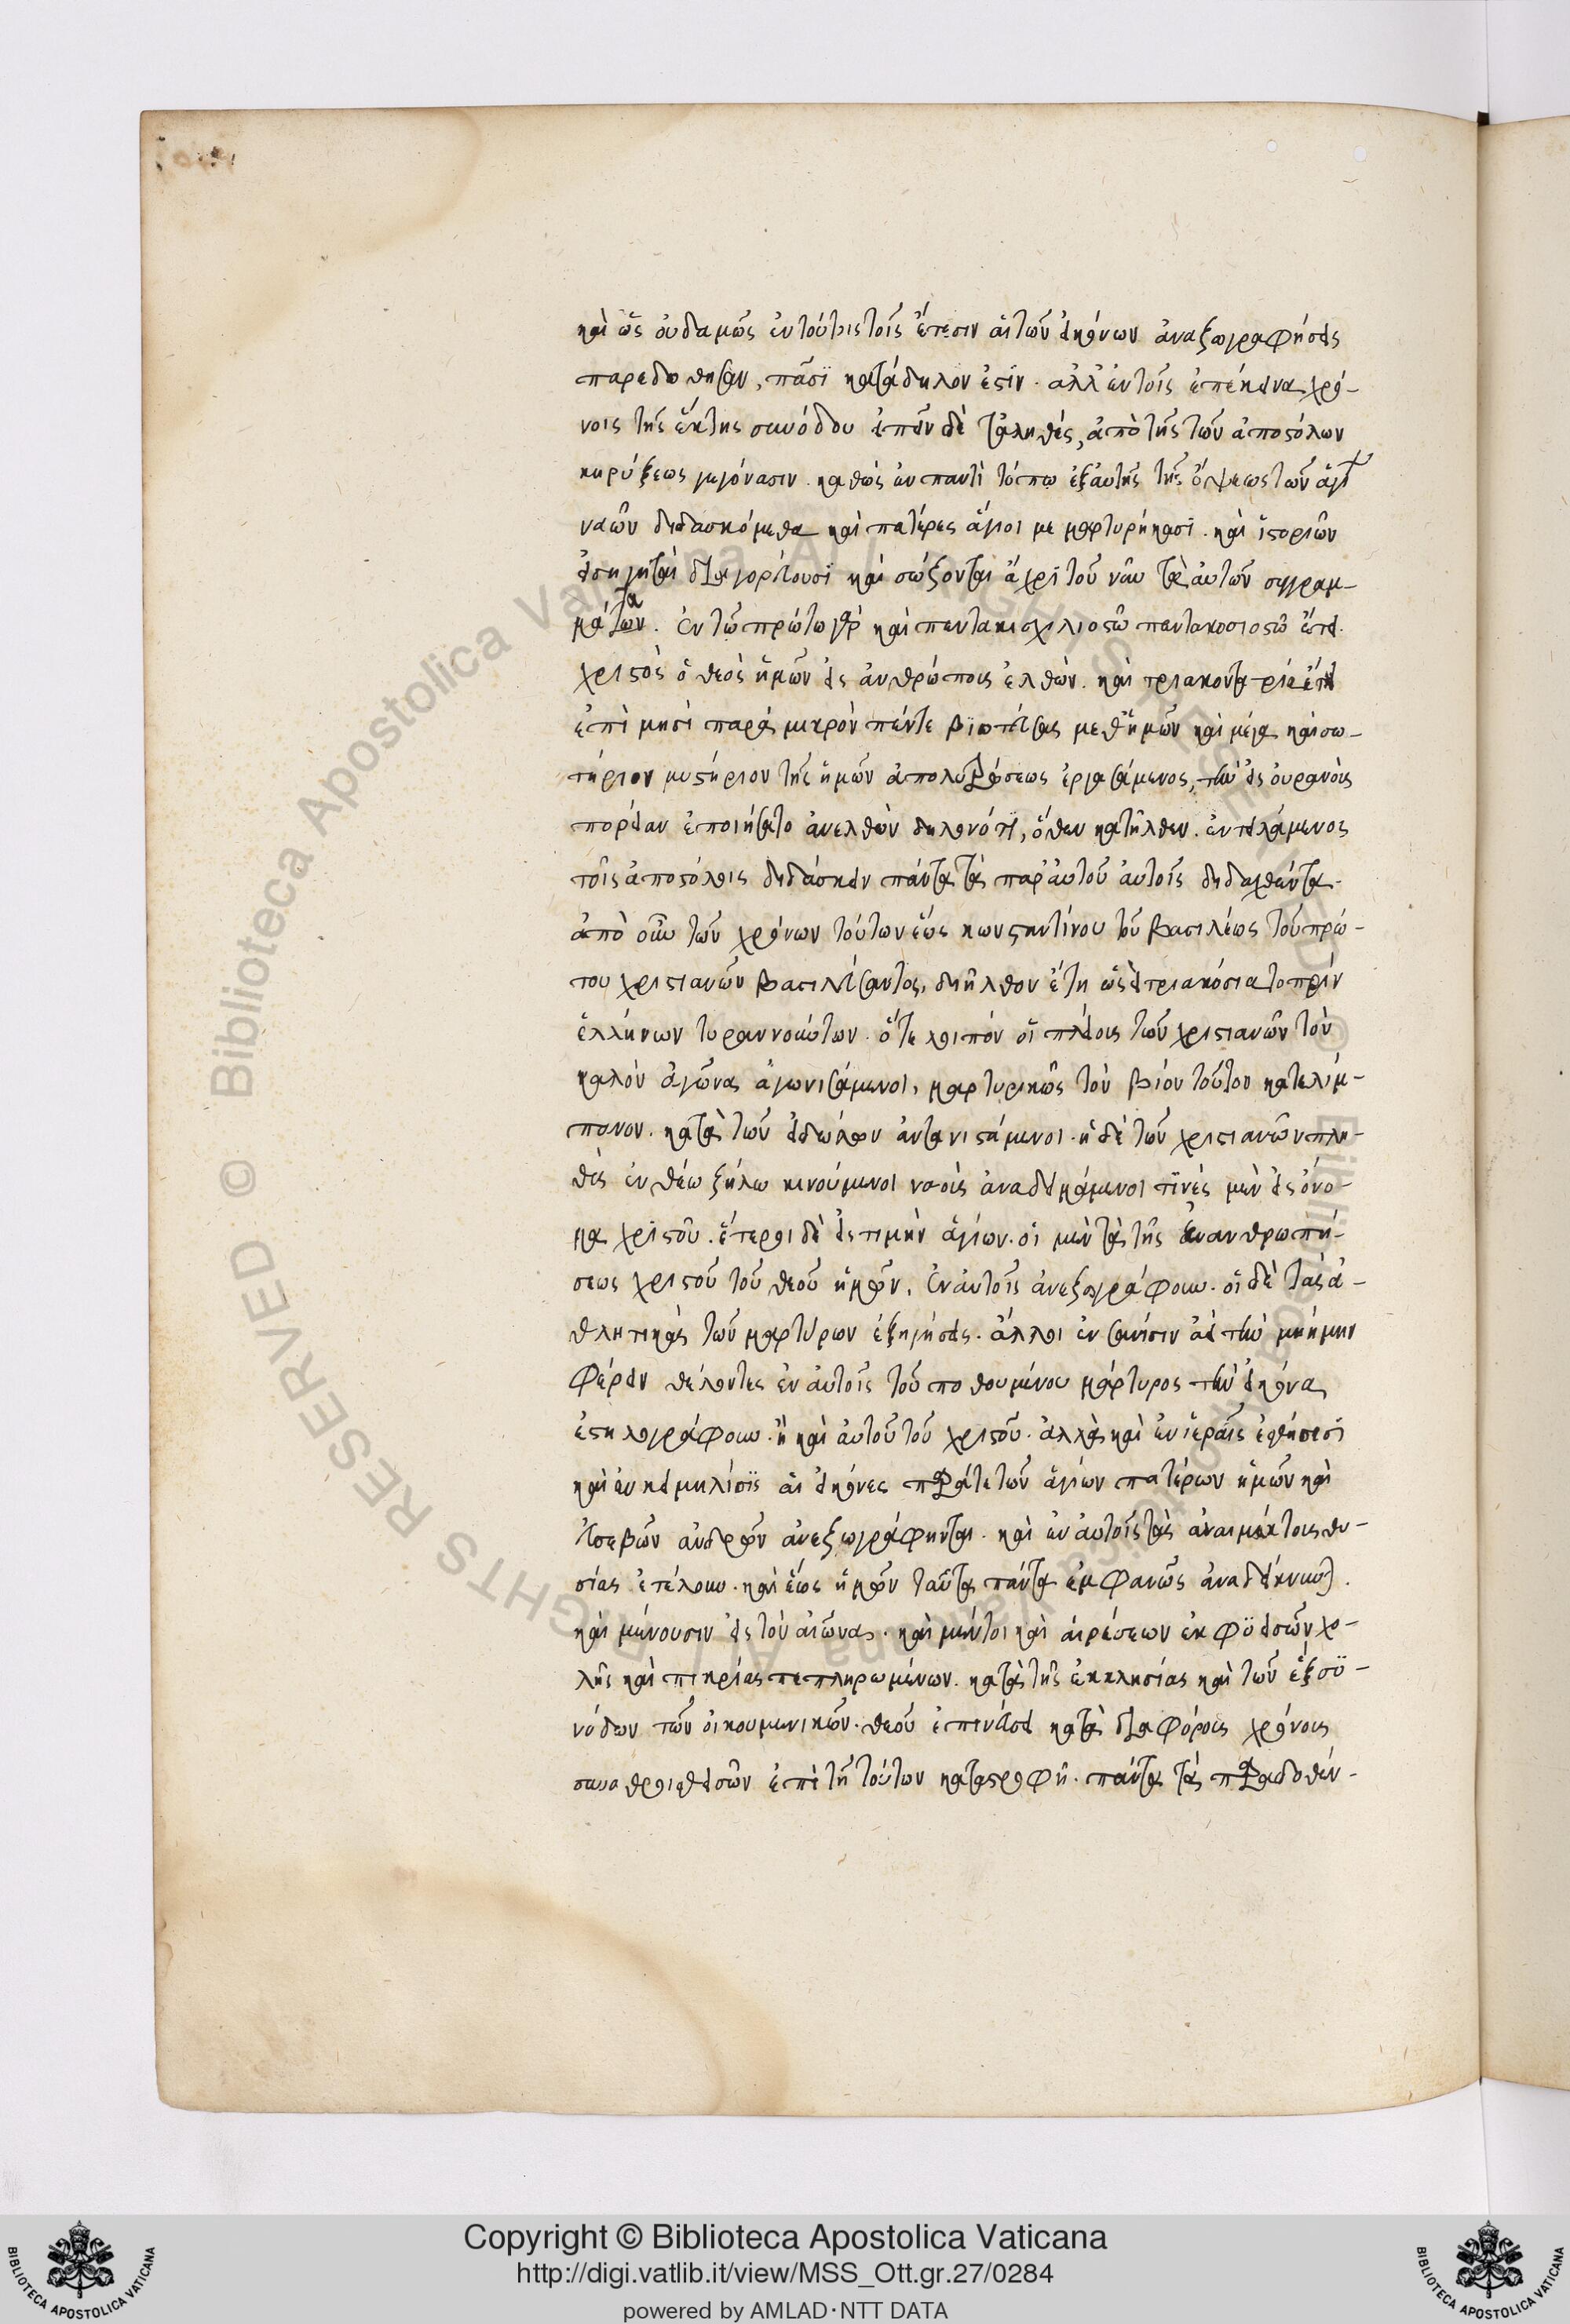 καὶ ὡς οὐδαμῶς ἐν τούτοις τοῖς ἔτεσιν αἱ τῶν εἰκόνων ἀναζωγραφήσεις
παρεδόθησαν, πᾶσι κατάδηλον ἐστίν. ἀλλ' ἐν τοῖς ἐπέκεινα χρό-
νοις τῆς ἕκτης συνόδου εἰπεῖν δὲ τἀληθές, ἀπὸ τῆς τῶν ἀποστόλων
κηρύξεως γεγόνασιν. καθὼς ἐν παντὶ τόπω ἐξ αὐτῆς τῆς ὄψεως τῶν ἁγί
ναῶν διδασκόμεθα καὶ πατέρες ἅγιοι μεμαρτυρήκασι. καὶ ἱστοριῶν
εἰσηγηταὶ διαγορεύουσι καὶ σώζονται ἄχρι τοῦ νῦν τὰ αὐτῶν συγγραμ-
μάτα. ἐν τῶ πρώτω γὰρ καὶ πεντακισχιλιοστῶ πεντακοσιοστῶ ἔτει.
χριστὸς ὁ θεὸς ἡμῶν εἰς ἀνθρώπους ἐλθών. καὶ τριακοντα τρία ἔτη
ἐπὶ μησὶ παρὰ μικρὸν πέντε βιοτεύσας μεθ' ἡμῶν καὶ μέγα καὶ σω-
τήριον μυστήριον τῆς ἡμῶν ἀπολυτρώσεως ἐργασάμενος, τὴν εἰς οὐρανοὺς
πορείαν ἐποιήσατο ἀνελθὼν δηλονότι, ὅθεν κατῆλθεν. ἐντειλάμενος
τοῖς ἀποστόλοις διδάσκειν πάντα τὰ παρ' αὐτοῦ αὐτοῖς διδαχθέντα.
ἀπὸ οὖν τῶν χρόνων τούτων ἕως κωνσταντίνου τοῦ βασιλέως τοῦ πρώ-
του χριστιανῶν βασιλεύσαντος, διῆλθον ἔτη ὡσεὶ τριακόσια τοπρὶν
ἑλλήνων τυραννούντων. ὅτε λοιπόν οἱ πλείους τῶν χριστιανῶν τὸν
καλὸν ἀγῶνας ἀγωνισάμενοι, μαρτυρικῶς τὸν βίον τοῦτον κατελίμ-
πανον. κατὰ τῶν εἰδώλων ἀντανιστάμενοι. ἡ δὲ τῶν χριστιανῶν πλη-
θὺς ἐν θείω ζήλω κινούμενοι ναοὺς ἀναδειμάμενοι τινὲς μὲν εἰς ὄνο-
μα χριστοῦ. ἕτεροι δὲ εἰς τιμὴν ἁγίων. οἱ μὲν τὰ τῆς ἐνανθρωπή-
σεως χριστοῦ τοῦ θεοῦ ἡμῶν, ἐν αὐτοῖς ἀνεζωγράφουν. οἱ δὲ τὰς ἀ-
θλητικὰς τῶν μαρτύρων ἐξηγήσεις. ἄλλοι ἐν σανίσιν ἀεὶ τὴν μνήμην
φέρειν θέλοντες ἐν αὐτοῖς τοῦ ποθουμένου μάρτυρος τὴν εἰκόνα
ἐστηλογράφουν. ἢ καὶ αὐτοῦ τοῦ χριστοῦ. ἀλλὰ καὶ ἐν ἱεραῖς ἐσθήσεσι
καὶ ἐν κειμηλίοις αἱ εἰκόνες παρά τε τῶν ἁγίων πατέρων ἡμῶν καὶ
εὐσεβῶν ἀνδρῶν ἀνεζωγράφηνται. καὶ ἐν αὐτοῖς τὰς ἀναιμάκτους θυ-
σίας ἐτέλουν. καὶ ἕως ἡμῶν ταῦτα πάντα ἐμφανῶς ἀναδείκνυνται.
καὶ μένουσιν εἰς τὸν αἰῶνα. καὶ μέντοι καὶ αἱρέσεων ἐκφυεισῶν χο-
λῆς καὶ πικρίας πεπληρωμένων. κατὰ τῆς ἐκκλησίας καὶ τῶν ἓξ συ-
νόδων τῶν οἰκουμενικῶν. θεοῦ ἐπινεύσει κατὰ διαφόρους χρόνους
συναθροισθεισῶν ἐπὶ τῆ τούτων καταστροφῆ. πάντα τὰ παραδοθέν-
Copyright © Biblioteca Apostolica Vaticana
http://digi.vatlib.it/view/MSS_Ott.gr.27/0284
powered by AMLAD·NTT DATA